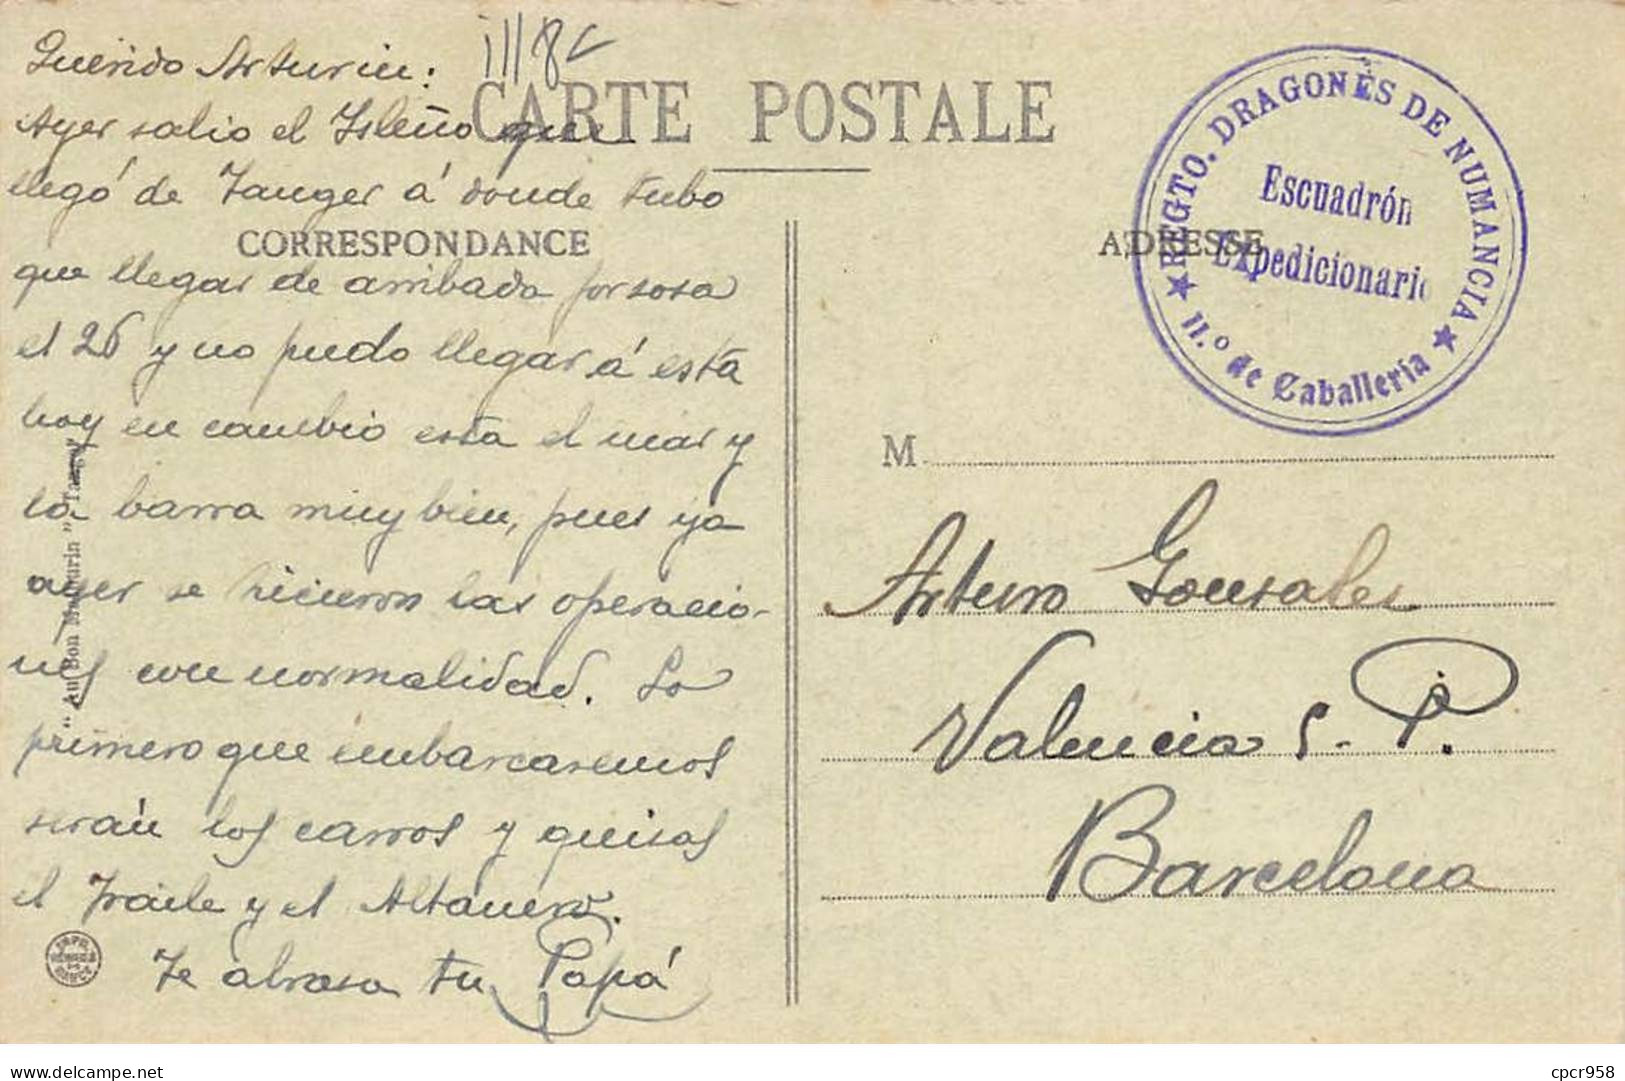 Querido Arturin:
Ayer salio el Isleño que
llegó de Tanger á donde tubo
que llegar de arribada forsosa
el 26 y no pudo llegar á esta
hoy en cambio esta el mar y
la barra muy bien, pues ya
ayer se hicieron las operacio-
nes con normalidad. Lo
primero que embarcaremos
serán los carros y quisas
el Fraile y el Altanero.
Te abrasa tu Papá
CARTE POSTALE
CORRESPONDANCE
ADRESSE
REGTO. DRAGONES DE NUMANCIA
Escuadrón
Expedicionario
★ 11.º de Caballería ★
M
Arturo Gonsales
Valencia S. P.
Barcelona
"Au Bon Marigurin" Tanger
cpcr958